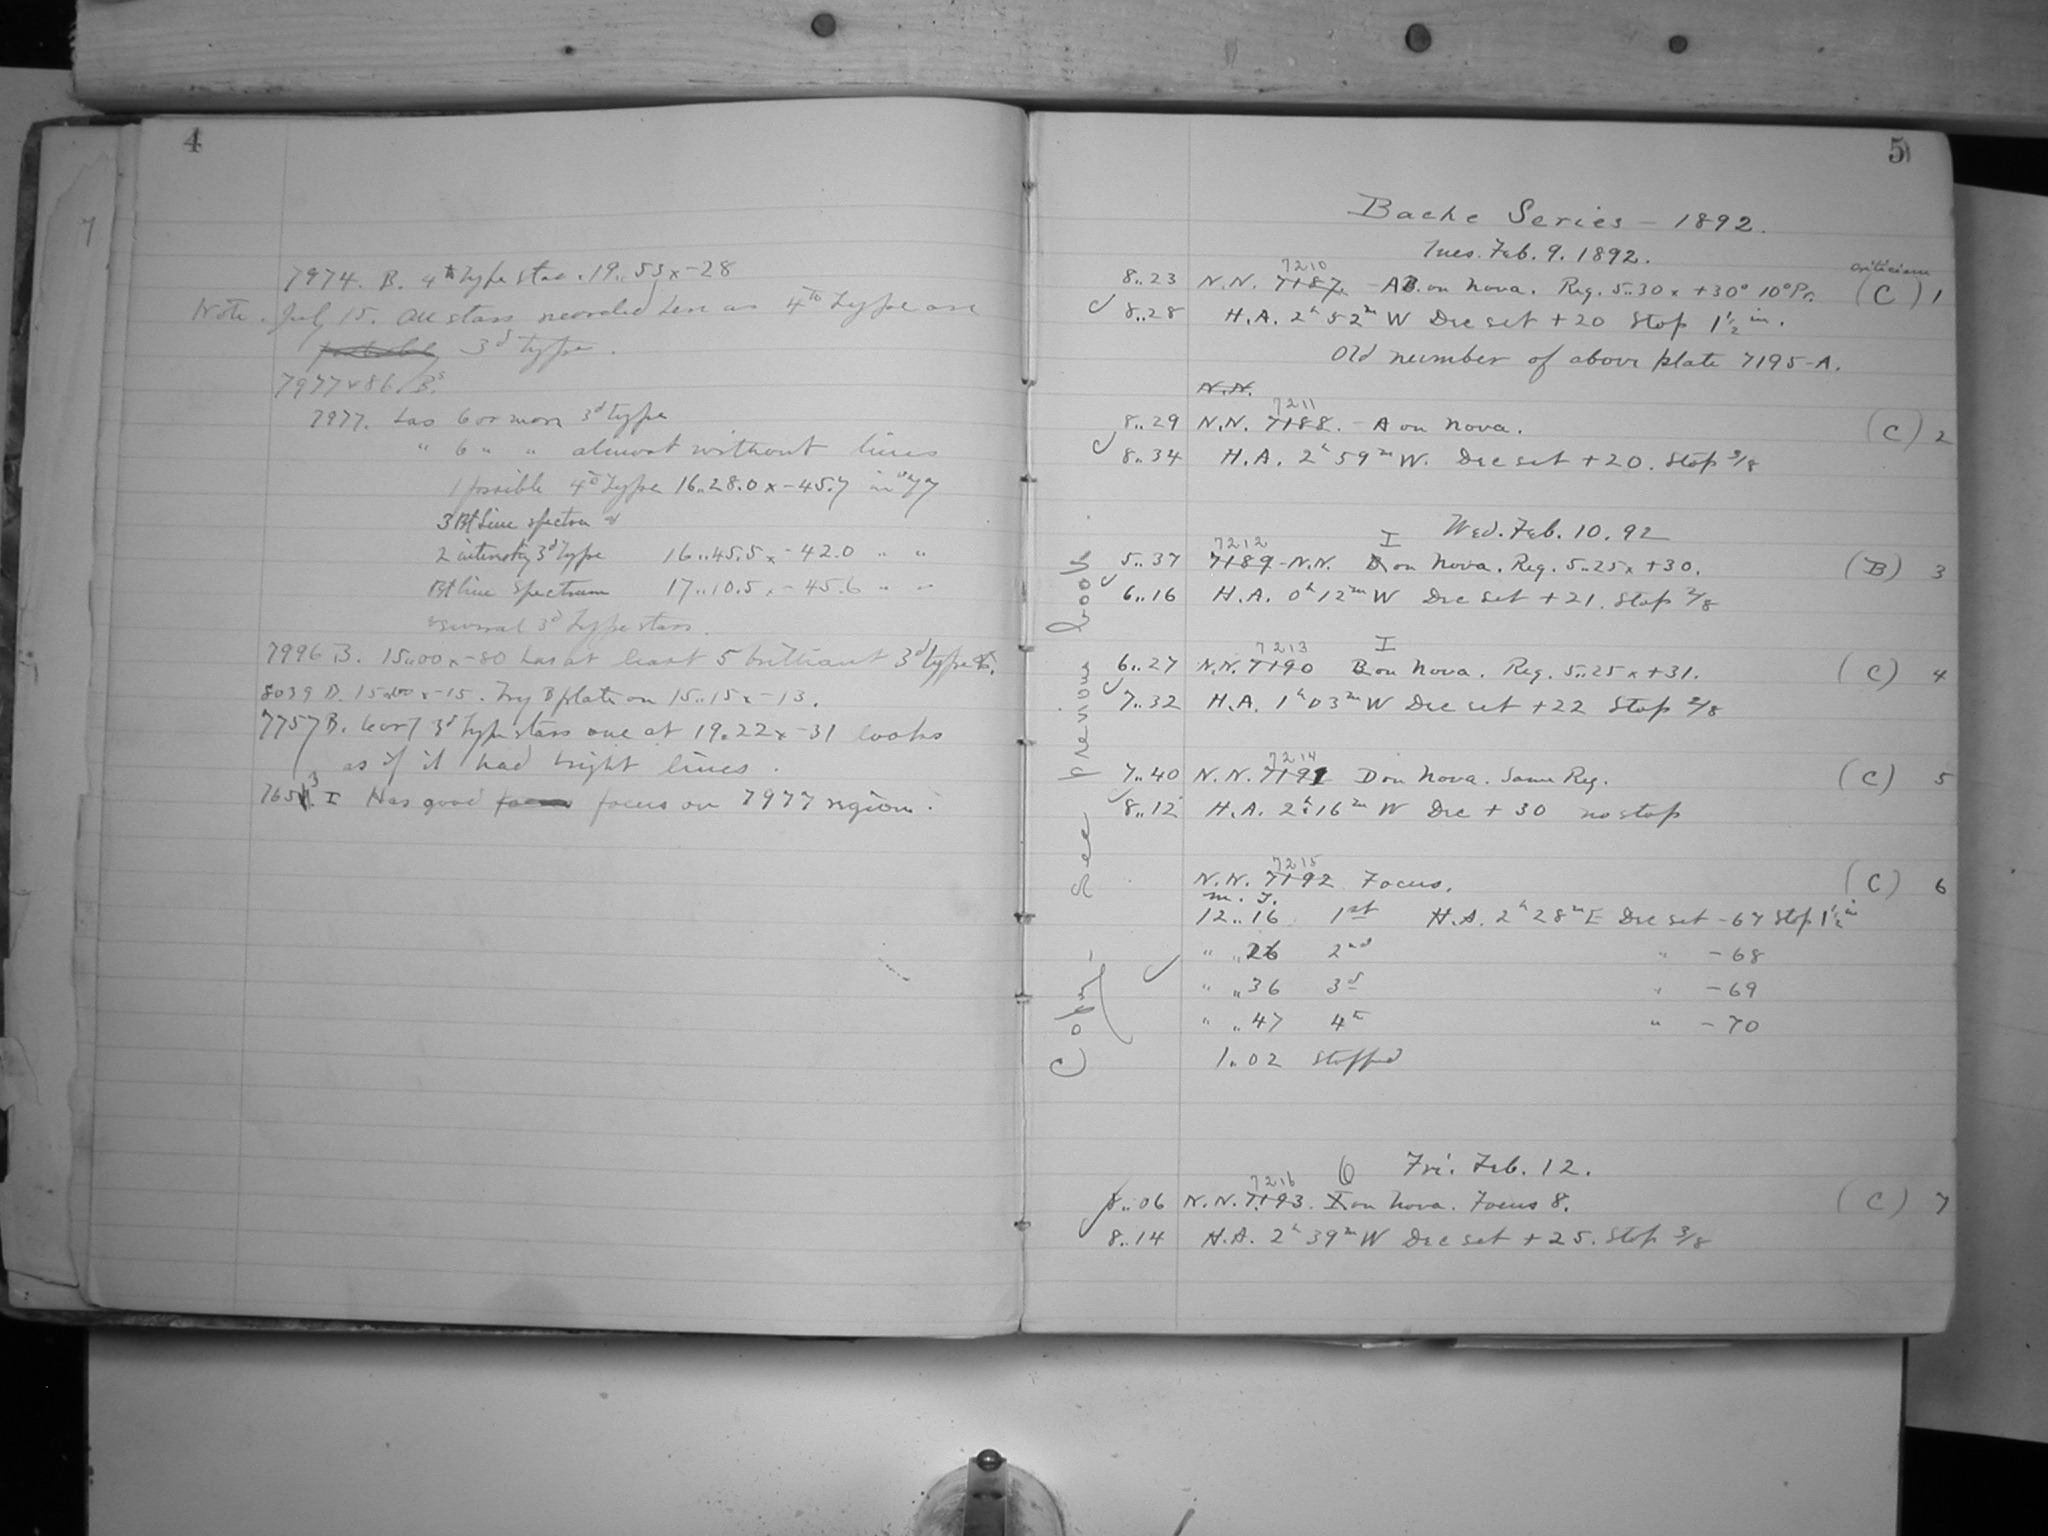 4
7974. B. 4th type star. 19..53 x -28
Note. July 15. All stars recorded here as 4th type are
probably 3d type.
7977 & 86. Bs.
7977. has 6 or more 3d type
" 6 " " almost without lines
1 possible 4th type 16..28.0 x -45.7 in '77
3 Bt line spectra
2 intensity 3d type 16..45.5 x -42.0 " "
Bt line spectrum 17..10.5 x -45.6 " "
several 3d type stars.
7996 B. 15..00 x -80 has at least 5 brilliant 3d types.
8039 D. 15..00 x -15. Try B plate on 15..15 x -13.
7757 B. 6 or 7 3d type stars one at 19.22 x -31 looks
as if it had bright lines.
I Has good focus on 7977 region.
5
Bache Series - 1892.
Tues. Feb. 9. 1892.
7210 criticism
8..23 N.N. 7187. - AB. on Nova. Reg. 5..30 x +30° 10° Pr. (C) 1
8..28 H.A. 2h 52m W Dec set +20 Stop 1 1/2 in.
Old number of above plate 7195-A.
N.N.
7211
8..29 N.N. 7188. - A on Nova. (C) 2
8..34 H.A. 2h 59m W. Dec set +20. Stop 3/8
Wed. Feb. 10. 92
7212 I
5..37 7189 - N.N. on Nova. Reg. 5..25 x +30. (B) 3
6..16 H.A. 0h 12m W Dec set +21. Stop 3/8
7213 I
6..27 N.N. 7190 B on Nova. Reg. 5..25 x +31. (C) 4
7..32 H.A. 1h 03m W Dec set +22 Stop 3/8
7214
7..40 N.N. 7191 D on Nova. Same Reg. (C) 5
8..12 H.A. 2h 16m W Dec +30 no stop
7215
N.N. 7192 Focus. (C) 6
M. T.
12..16 1st H.A. 2h 28m E Dec set -67 Stop 1 1/2 in
" ..26 2nd " -68
" ..36 3d " -69
" ..47 4th " -70
1..02 stopped
Fri. Feb. 12.
7216 6
8..06 N.N. 7193. I on Nova. Focus 8. (C) 7
8..14 H.A. 2h 39m W Dec set +25. Stop 3/8
Copy - See previous book